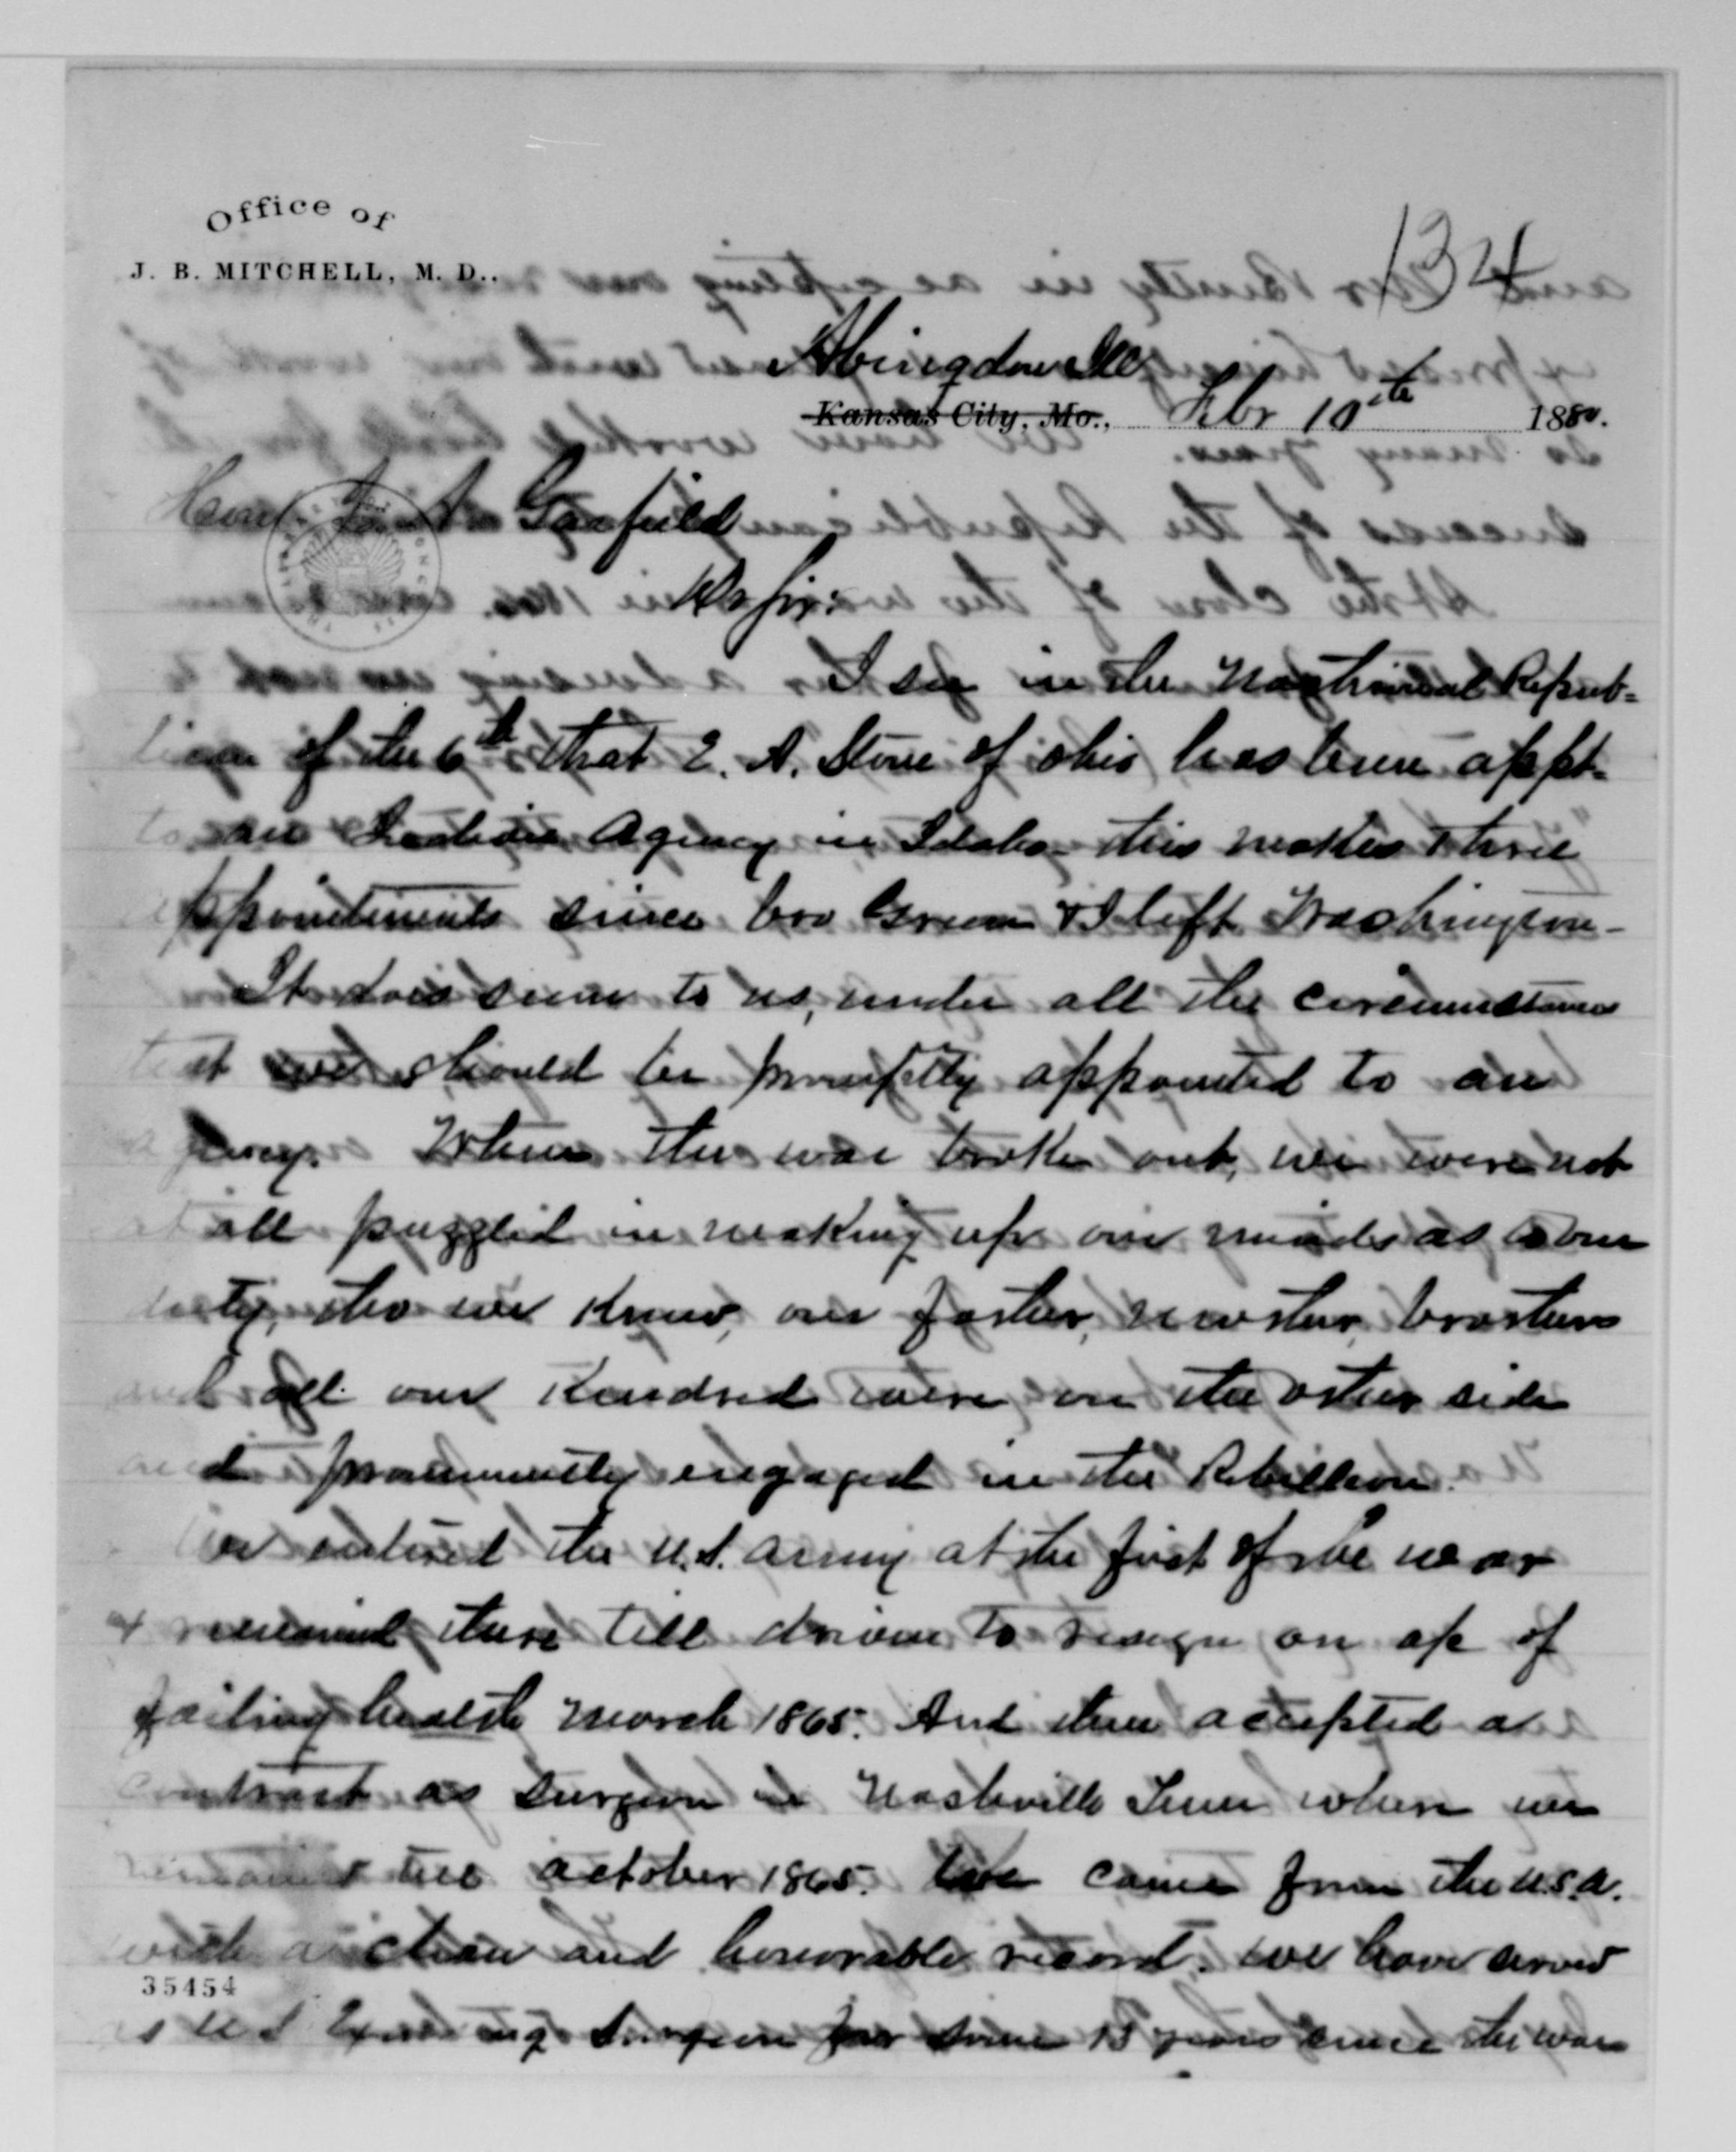 Office of
J. B. MITCHELL, M. D..
134
Abingdon Ill
Kansas City, Mo., Febr 10th 1880.
Hon Garfield
Dr Sir:
I see in the National Repub-
lican of the 6th that E. A. Stone of Ohio has been appt-
to an Indian Agency in Idaho - this makes three
appointments since Gen Green & I left Washington -
It does seem to us, under all the circumstances
that we should be promptly appointed to an
agency. When the war broke out, we were not
at all puzzled in making up our minds as to our
duty, tho we knew, our father, mother, brothers
and all our Kindred were on the other side
and prominently engaged in the Rebellion.
We entered the U.S. Army at the first of the war
& remained there till driven to resign on a/c of
failing health March 1865. And then accepted a
contract as Surgeon in Nashville Tenn where we
remained till October 1865. We came from the U.S.A.
with a clean and honorable record. We have served
35454
as U S Examining Surgeon for some 13 years since the war